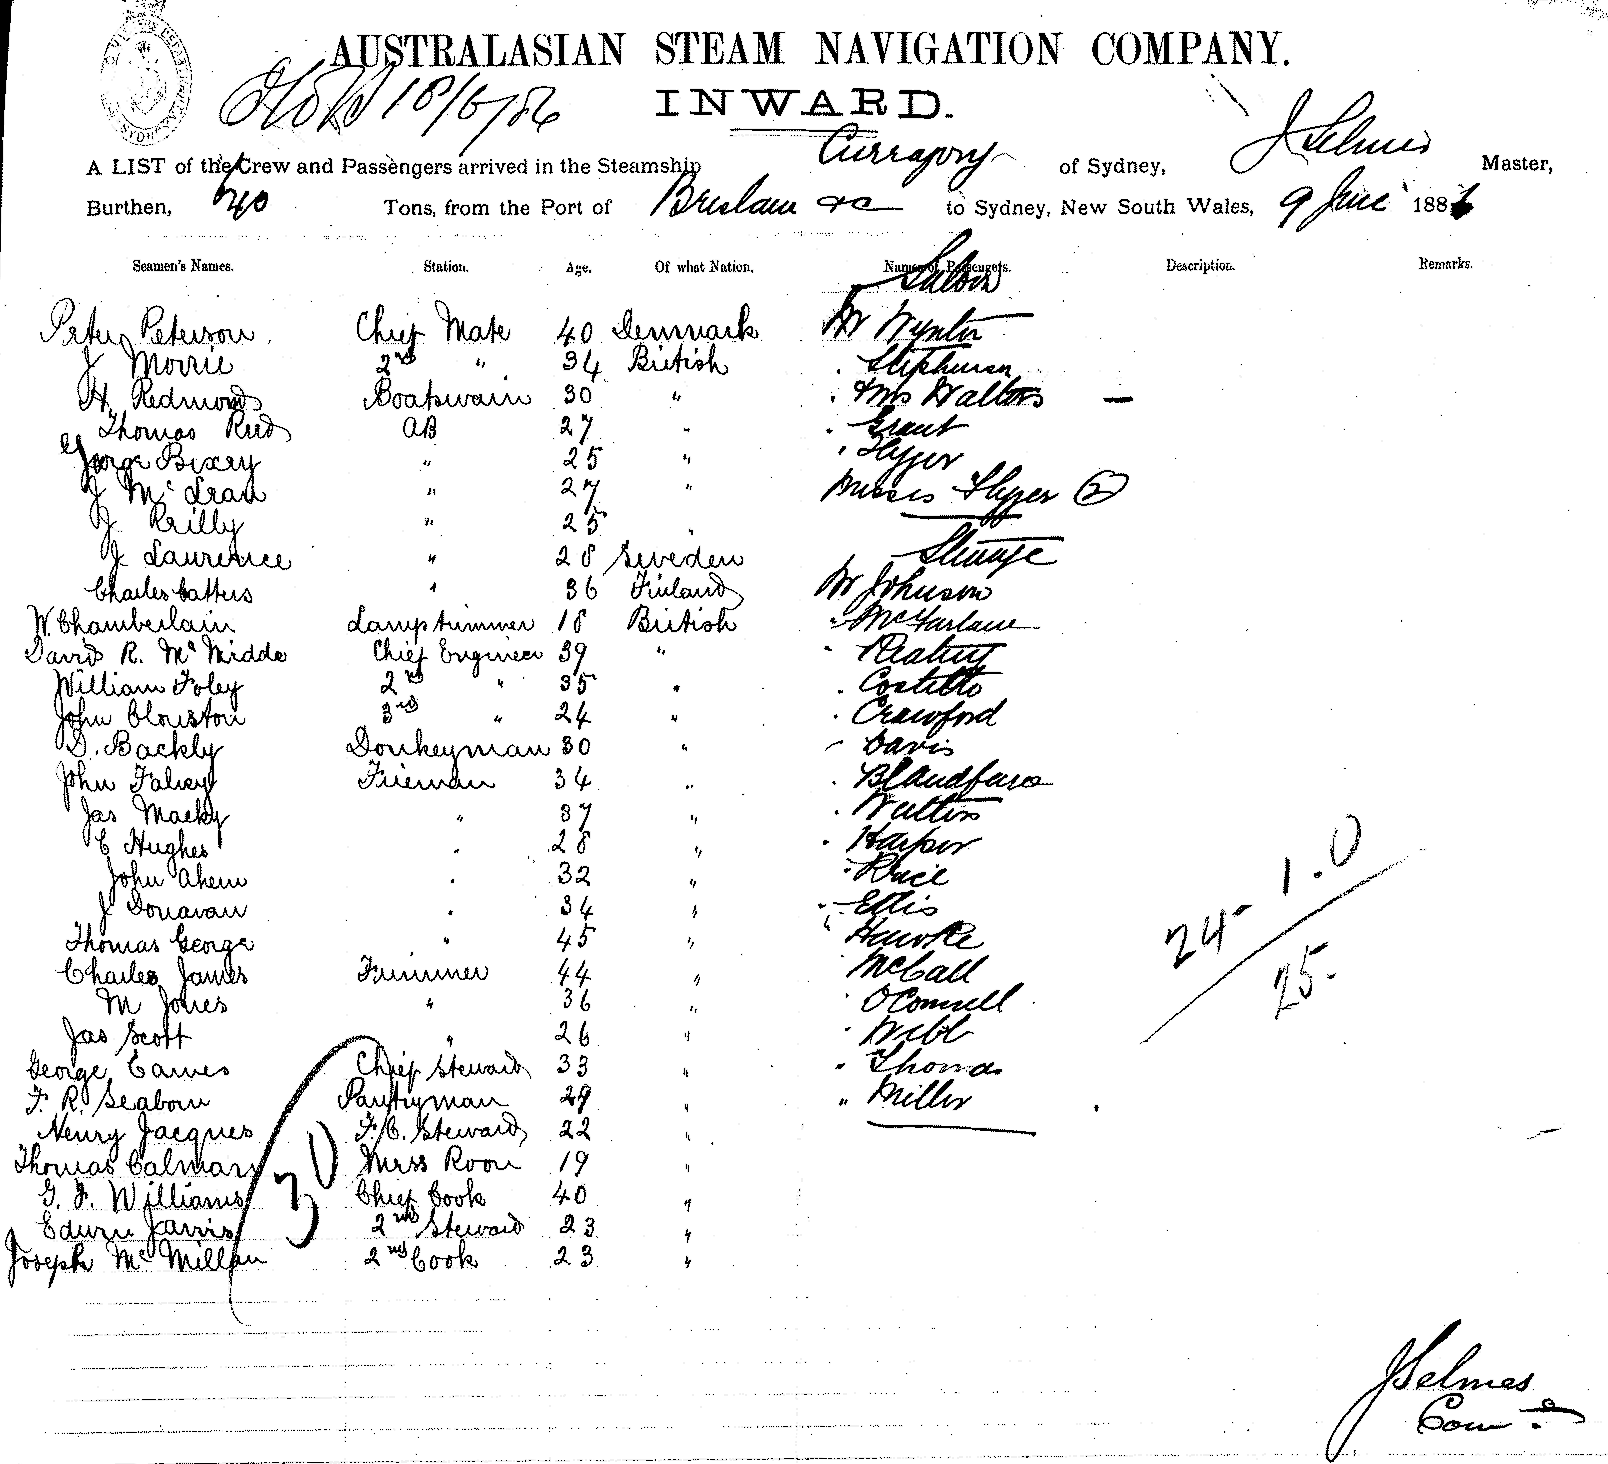 AUSTRALASIAN STEAM NAVIGATION COMPANY.
18/6/86
INWARD.
A LIST of the Crew and Passengers arrived in the Steamship Currajong of Sydney, J Selmes Master,
Burthen, Tons, from the Port of Brisbane &c to Sydney, New South Wales, 9 June 1886
Seamen's Names. Station. Age. Of what Nation. Names of Passengers. Description. Remarks.
Saloon
Peter Peterson Chief Mate 40 Denmark Mr Wynter
J Morrie 2nd " 34 British . Stephenson
H. Redmond Boatswain 30 " . & Mrs Walters —
Thomas Reed AB 27 " . Grant
George Bixey " 25 "
J McLean " 27 " Misses (2)
J. Reilly " 25 "
J Laurence " 28 Sweden Steerage
Charles Catters " 36 Finland Mr Johnson
W. Chamberlain Lamptrimmer 18 British " McFarlane
David R. Mc Chief Engineer 39 " " Keating
William Foley 2nd " 35 " . Costello
John Clouston 3rd " 24 " . Crawford
D. Backly Donkeyman 30 " " Davis
John Falvey Fireman 34 " . Blandford
Jas Macky " 37 " . Walters
C Hughes " 28 " . Harper
John Ahern " 32 " " Price
J Donavan " 34 " " Ellis
Thomas George " 45 " "
Charles James Trimmer 44 " McCall
M Jones " 36 " . O'Connell
Jas Scott " 26 " . Webb
George Eames Chief Steward 33 " " Thomas
F. R. Seaborn Pantryman 29 " " Miller
Henry Jacques F/C. Steward 22 "
Thomas Calman Mess Room 19 "
G. F. Williams Chief Cook 40 "
Edwin Jarvis 2nd Steward 23 "
Joseph McMillan 2nd Cook 23 "
30
24 - 1.0
25.
J Selmes
Com